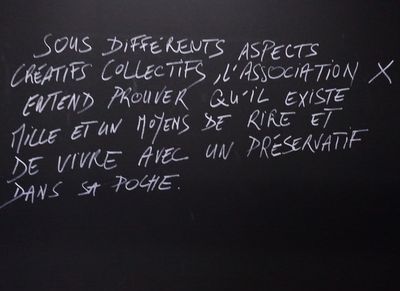 SOUS DIFFÉRENTS ASPECTS
CRÉATIFS COLLECTIFS, L'ASSOCIATION X
ENTEND PROUVER QU'IL EXISTE
MILLE ET UN MOYENS DE RIRE ET
DE VIVRE AVEC UN PRÉSERVATIF
DANS SA POCHE.